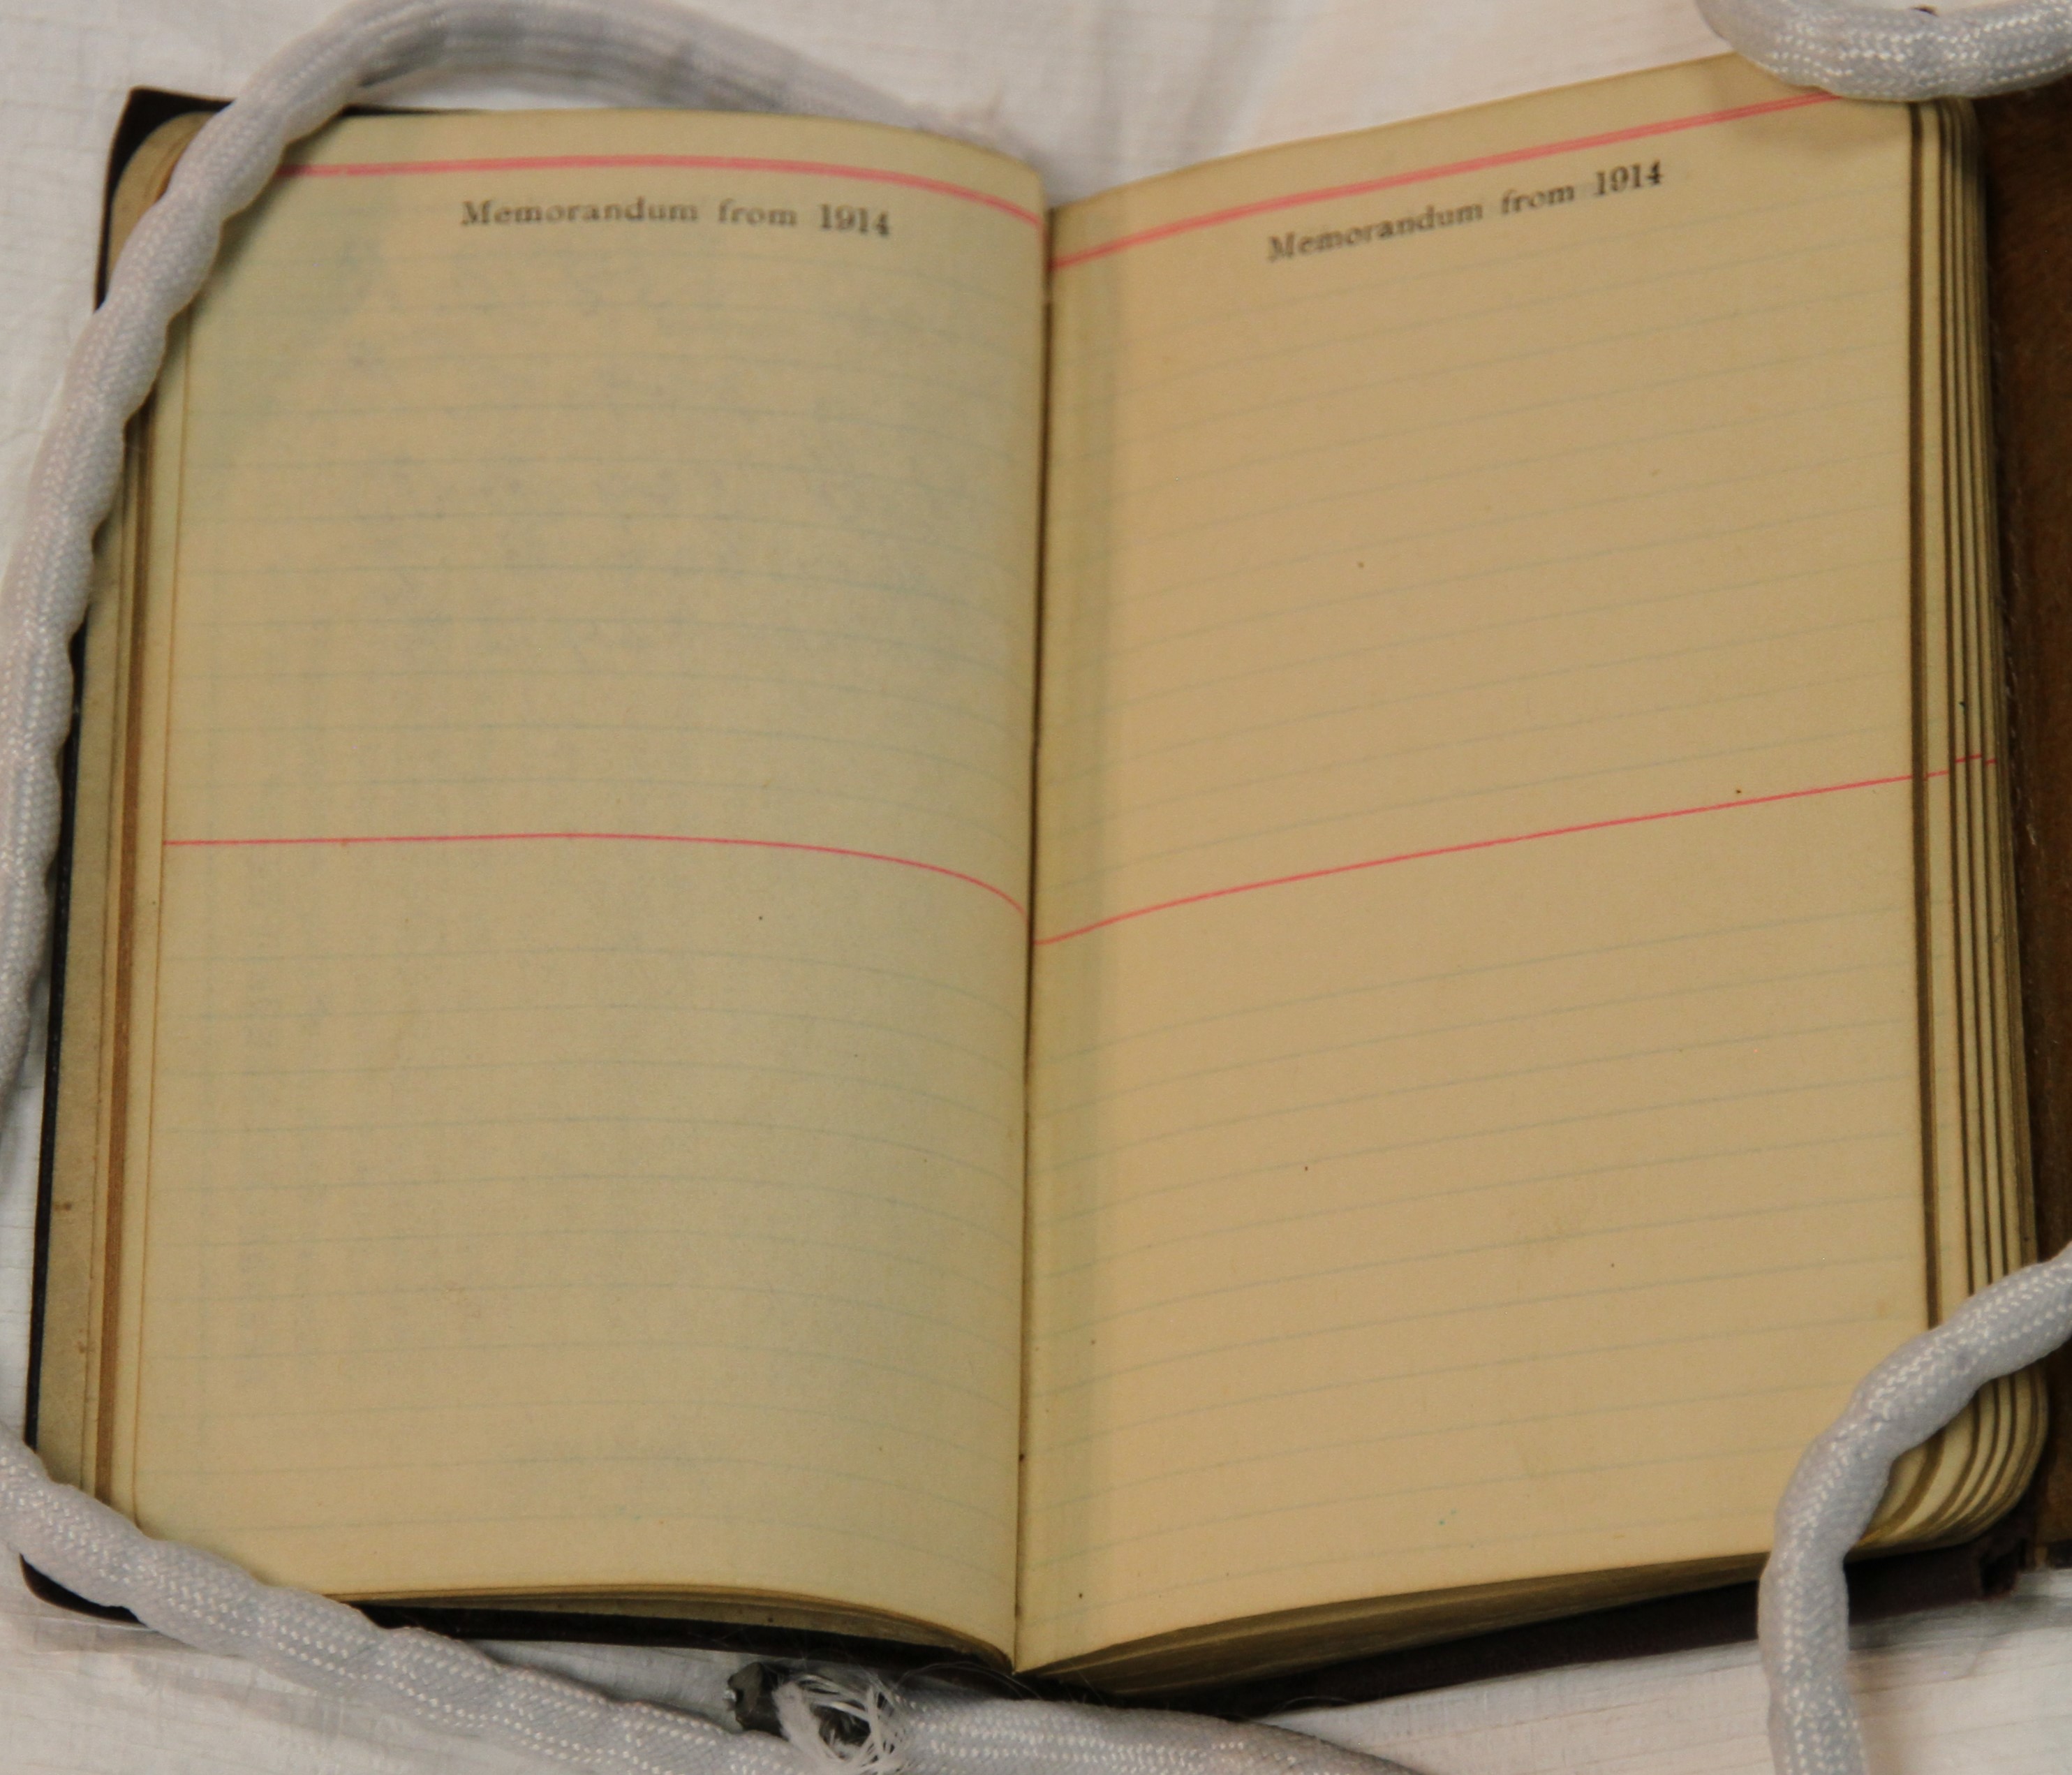 Memorandum from 1914
Memorandum from 1914